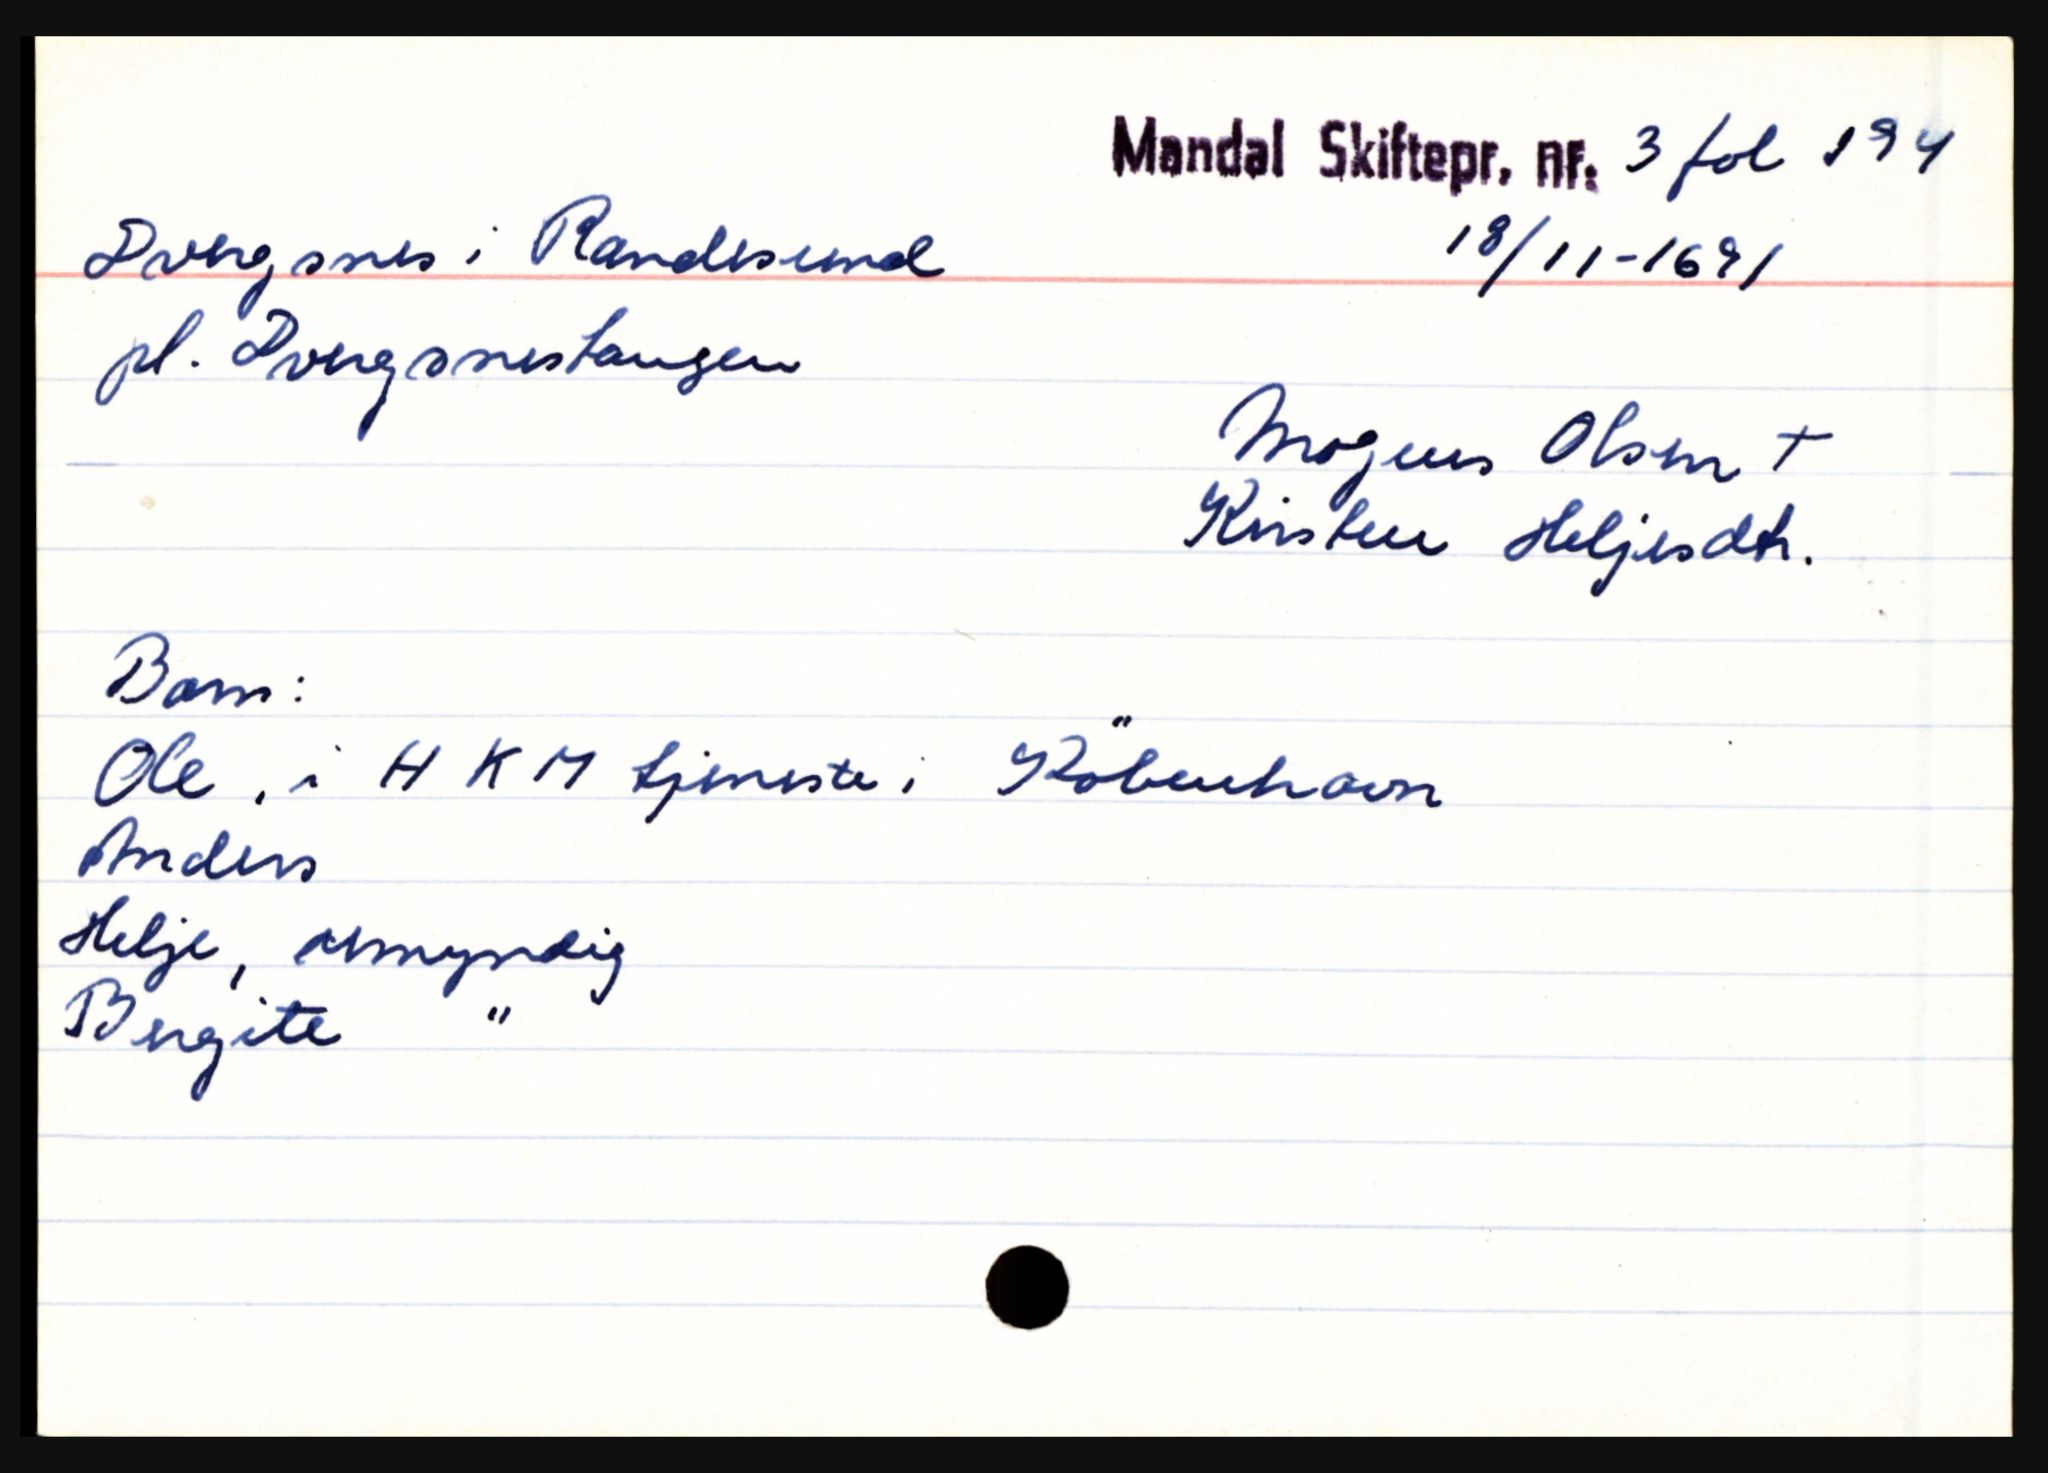 Mandal Skiftepr. nr. 3 fol 194
18/11-1691
Dvergsnes i Randesund
pl. Dvergsnestangen
Mogens Olsen +
Kirsten Heljesdtr.
Barn:
Ole, i H K M tjeneste i Köbenhavn
Anders
Helje, umyndig
Bergite "